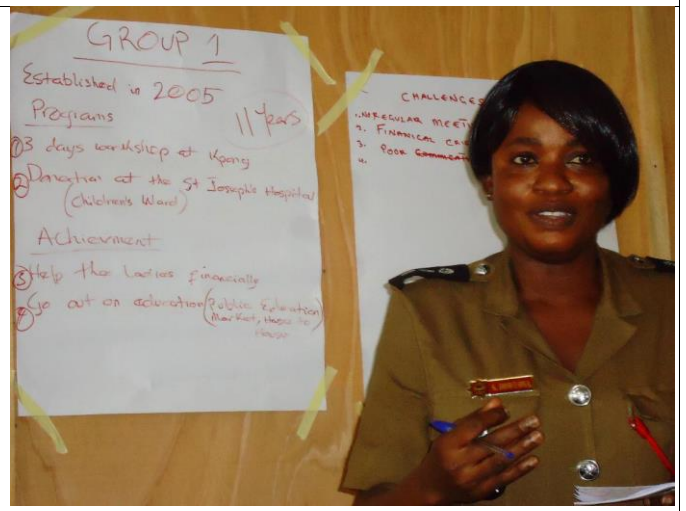 GROUP 1
Established in 2005
Programs
11 Years
① 3 days workshop at Kpong
② Donation at the St Joseph's Hospital
(Children's Ward)
Achievment
③ Help the Ladies financially
④ Go out on education (Public Education
Market, House to
House)
CHALLENGES
1. IRREGULAR
2. FINANCIAL
3. POOR
4.